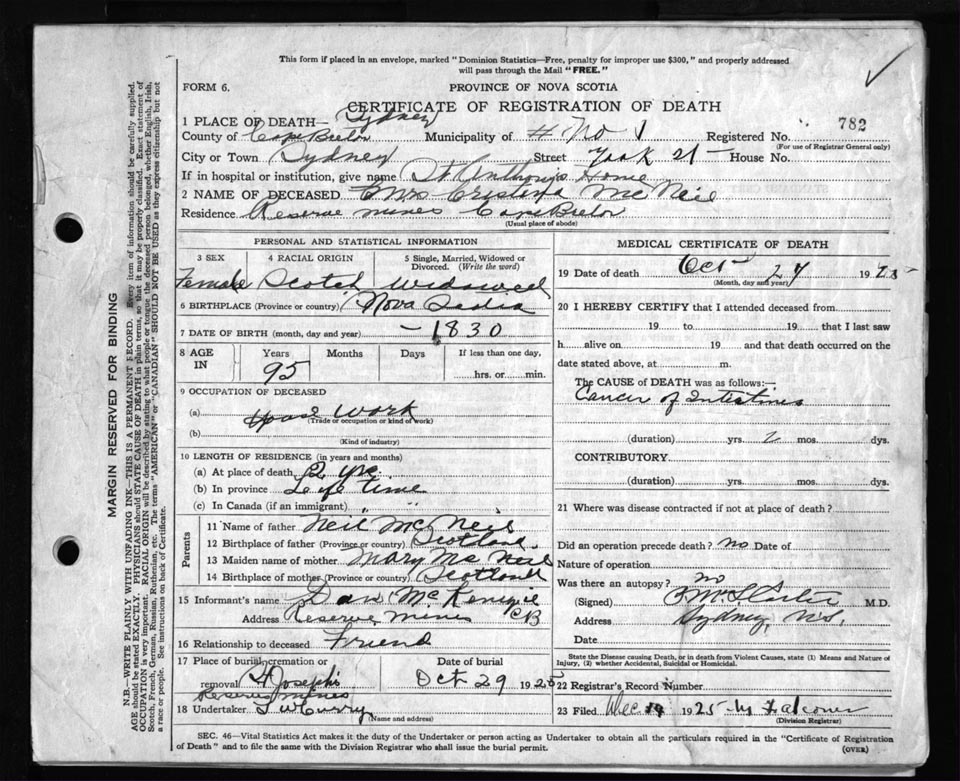 This form if placed in an envelope, marked "Dominion Statistics—Free, penalty for improper use $300," and properly addressed
will pass through the Mail "FREE."
FORM 6. PROVINCE OF NOVA SCOTIA
CERTIFICATE OF REGISTRATION OF DEATH
1 PLACE OF DEATH— Sydney
County of Cape Breton Municipality of # No 1 Registered No. 782
(For use of Registrar General only)
City or Town Sydney Street York St House No.
If in hospital or institution, give name St Anthony's Home
2 NAME OF DECEASED Mrs McNeil
Residence Reserve Mines Cape Breton
(Usual place of abode)
PERSONAL AND STATISTICAL INFORMATION
3 SEX 4 RACIAL ORIGIN 5 Single, Married, Widowed or Divorced. (Write the word)
Female Scotch Widowed
6 BIRTHPLACE (Province or country) Nova Scotia
7 DATE OF BIRTH (month, day and year) – 1830
8 AGE IN Years Months Days If less than one day,
95 hrs. or min.
9 OCCUPATION OF DECEASED
(a) House Work
(Trade or occupation or kind of work)
(b)
(Kind of industry)
10 LENGTH OF RESIDENCE (in years and months)
(a) At place of death 2 yrs.
(b) In province Life time
(c) In Canada (if an immigrant) " "
Parents
11 Name of father Neil McNeil
12 Birthplace of father (Province or country) Scotland
13 Maiden name of mother Mary McNeil
14 Birthplace of mother (Province or country) Scotland
15 Informant's name Dan McKenzie
Address Reserve Mines CB
16 Relationship to deceased Friend
17 Place of burial, cremation or removal St Josephs Reserve Mines
Date of burial Oct 29 1925
18 Undertaker Curry
(Name and address)
MEDICAL CERTIFICATE OF DEATH
19 Date of death Oct 27 1925
(Month, day and year)
20 I HEREBY CERTIFY that I attended deceased from
19 to 19 that I last saw
h alive on 19 and that death occurred on the
date stated above, at m.
The CAUSE of DEATH was as follows:—
Cancer of Intestines
(duration) yrs. 2 mos. dys.
CONTRIBUTORY.
(duration) yrs. mos. dys.
21 Where was disease contracted if not at place of death?
Did an operation precede death? no Date of
Nature of operation
Was there an autopsy? no
(Signed) M.D.
Address Sydney, N.S.
Date
State the Disease causing Death, or in death from Violent Causes, state (1) Means and Nature of
Injury, (2) whether Accidental, Suicidal or Homicidal.
22 Registrar's Record Number
23 Filed Dec 1925 Falconer
(Division Registrar)
SEC. 46—Vital Statistics Act makes it the duty of the Undertaker or person acting as Undertaker to obtain all the particulars required in the "Certificate of Registration
of Death" and to file the same with the Division Registrar who shall issue the burial permit. (OVER)
MARGIN RESERVED FOR BINDING
N.B.—WRITE PLAINLY WITH UNFADING INK—THIS IS A PERMANENT RECORD. Every item of information should be carefully supplied.
AGE should be stated EXACTLY. PHYSICIANS should STATE CAUSE OF DEATH in plain terms, so that it may be properly classified. Exact statement of
OCCUPATION is very important. RACIAL ORIGIN will be described by stating to what people or tongue the deceased person belonged, whether English, Irish,
Scotch, French, German, Russian, Ruthenian, etc. The terms "AMERICAN" or "CANADIAN" SHOULD NOT BE USED as they express citizenship but not
a race or people. See instructions on back of Certificate.